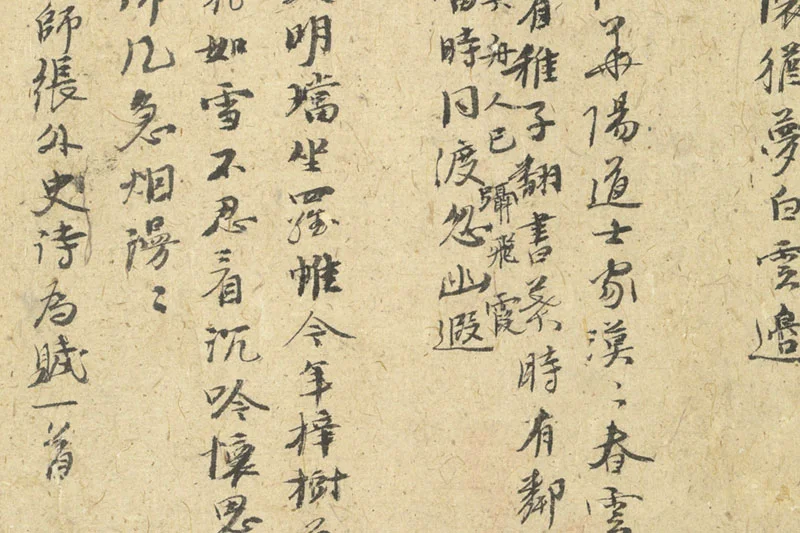 懷猶夢白雲邊
華陽道士家漠〻春雲
有稚子翻書葉時有鄰
舟人已躡飛霞
當時同渡忽幽遐
明璫坐羅帷今年梓樹
如雪不忍看沉吟懷思
几急烟漫〻
師張外史詩為賦一首